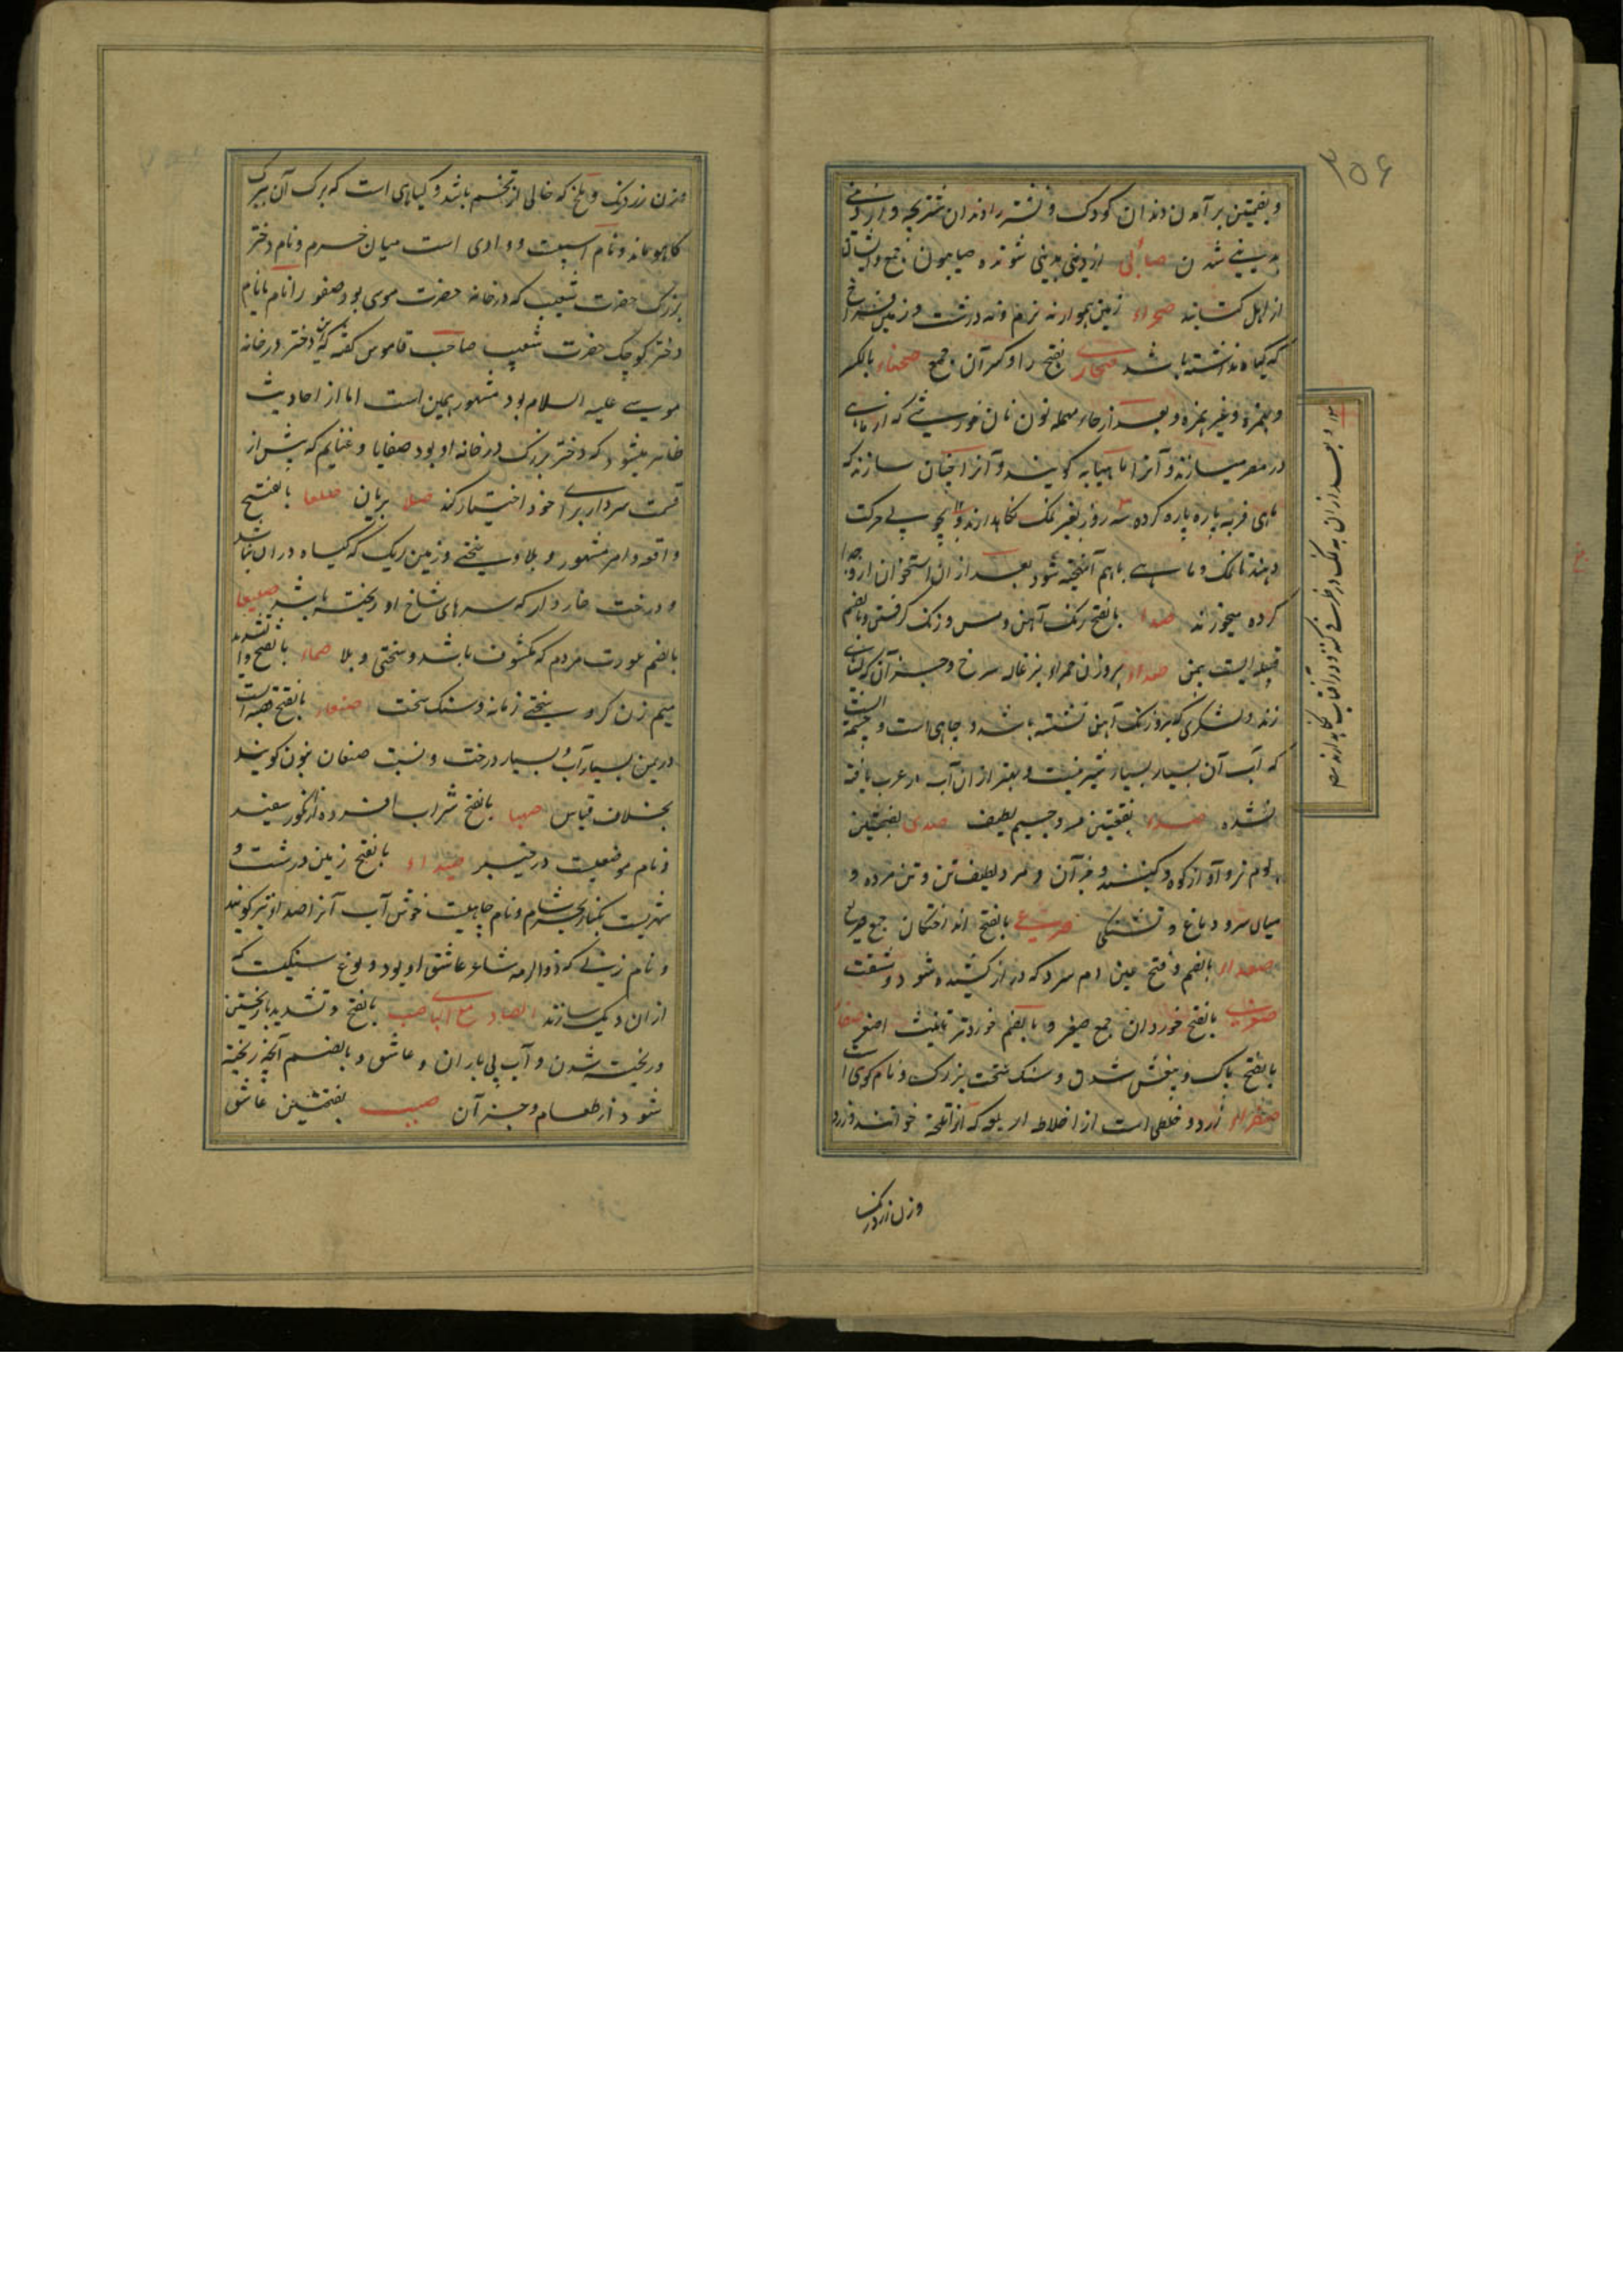 ۳۵۶
و بضمتین برآمدن دندان کودک و نشتر دندان شتربچه و از دینی
بدینی شدن صابی از دینی بدینی شونده صابیون جمع و ایشان
از اهل کتابند صحراء زمین هموار نه نرم و نه درشت و زمین فراخ
که گیاه نداشته باشد صحاری بفتح را و کسر آن جمع صحناء بالکسر
و بهمزه و غیر همزه و بعد از حاء مهمله نون نان خورشی که از ماهی
در مصر میسازند و آنرا ماهیابه گویند و آنرا چنان سازند که
ماهی فربه پاره پاره کرده سه روز بغیر نمک نگاهدارند و بچوب حرکت
دهند تا نمک و ماهی باهم آمیخته شود بعد از ان استخوان از و جدا
کرده میخورند صدا بالفتح زنگ آهن و مس و زنگ گرفتن و بالضم
قبیله ایست بیمن صداء بروزن حمراء بزغاله سرخ و جز آن که بسیاهی
زند و لشکری که برو زنگ آهن نشسته باشد و چاهی است و چشمه ایست
که آب آن بسیار بسیار شیرینست و بهتر از ان آب در عرب یافته
نشده بفتحتین مرد جسیم لطیف صدی بفتحتین
بوم نر و آواز کوه و گنبد و جز آن و مرد لطیف تن و تن مرده و
میان سر و دماغ و تشنگی صرعی بالفتح انداختگان جمع صریع
صعداء بالضم و فتح عین دم سرد که دراز کشیده شود و مشقت
صغری بالفتح خوردان جمع صغیر و بالضم خوردتر تانیث اصغر صفا
بالفتح پاک و بیغش شدن و سنگ سخت بزرگ و نام کوهی است
صفراء زرد و خلطی است از اخلاط اربعه که آنرا تلخه خوانند و زرد
وزن زردرنگ
و بعد از ان به نمک در ظرفی کنند و در آفتاب نگاهدارند
وزن زردرنگ و ملخ که خالی از تخم باشد و گیاهی است که برگ آن ببرگ
کاهو ماند و نام اسپیست و وادی است میان حرم و نام دختر
بزرگ حضرت شعیب که در خانه حضرت موسی بود صفورا نام یا نام
دختر کوچک حضرت شعیب صاحب قاموس گفته که این دختر در خانه
موسی علیه السلام بود مشهور همین است اما از احادیث
ظاهر میشود که دختر بزرگ در خانه او بود صفایا و غنایم که پیش از
قسمت سردار برای خود اختیار کند صلا بریان صلعا بالفتح
واقعه و امر مشهور و بلا و سختی و زمین ریگ که گیاه در ان نباشد
و درخت خاردار که سرهای شاخ او ریخته باشد صلیعا
بالضم عورت مردم که مکشوف باشد و سختی و بلا صماء بالفتح و تشدید
میم زن کر و سختی زمانه و سنگ سخت صنعاء بالفتح قصبه ایست
در یمن بسیار آب و بسیار درخت و نسبت صنعان بنون گویند
بخلاف قیاس صهبا بالفتح شراب افشرده از انگور سفید
و نام موضعیست در خیبر صیداء بالفتح زمین درشت و
شهریست بکنار بحر شام و نام چاهیست خوش آب آنرا صداء نیز گویند
و نام زنی که ذوالرمه شاعر عاشق او بود و نوع سنگیست که
از ان دیگ سازند الصاد مع الباء صب بالفتح و تشدید با ریختن
و ریخته شدن و آب پی باران و عاشق و بالضم آنچه ریخته
شود از طعام و جز آن صبب بفتحتین عاشق